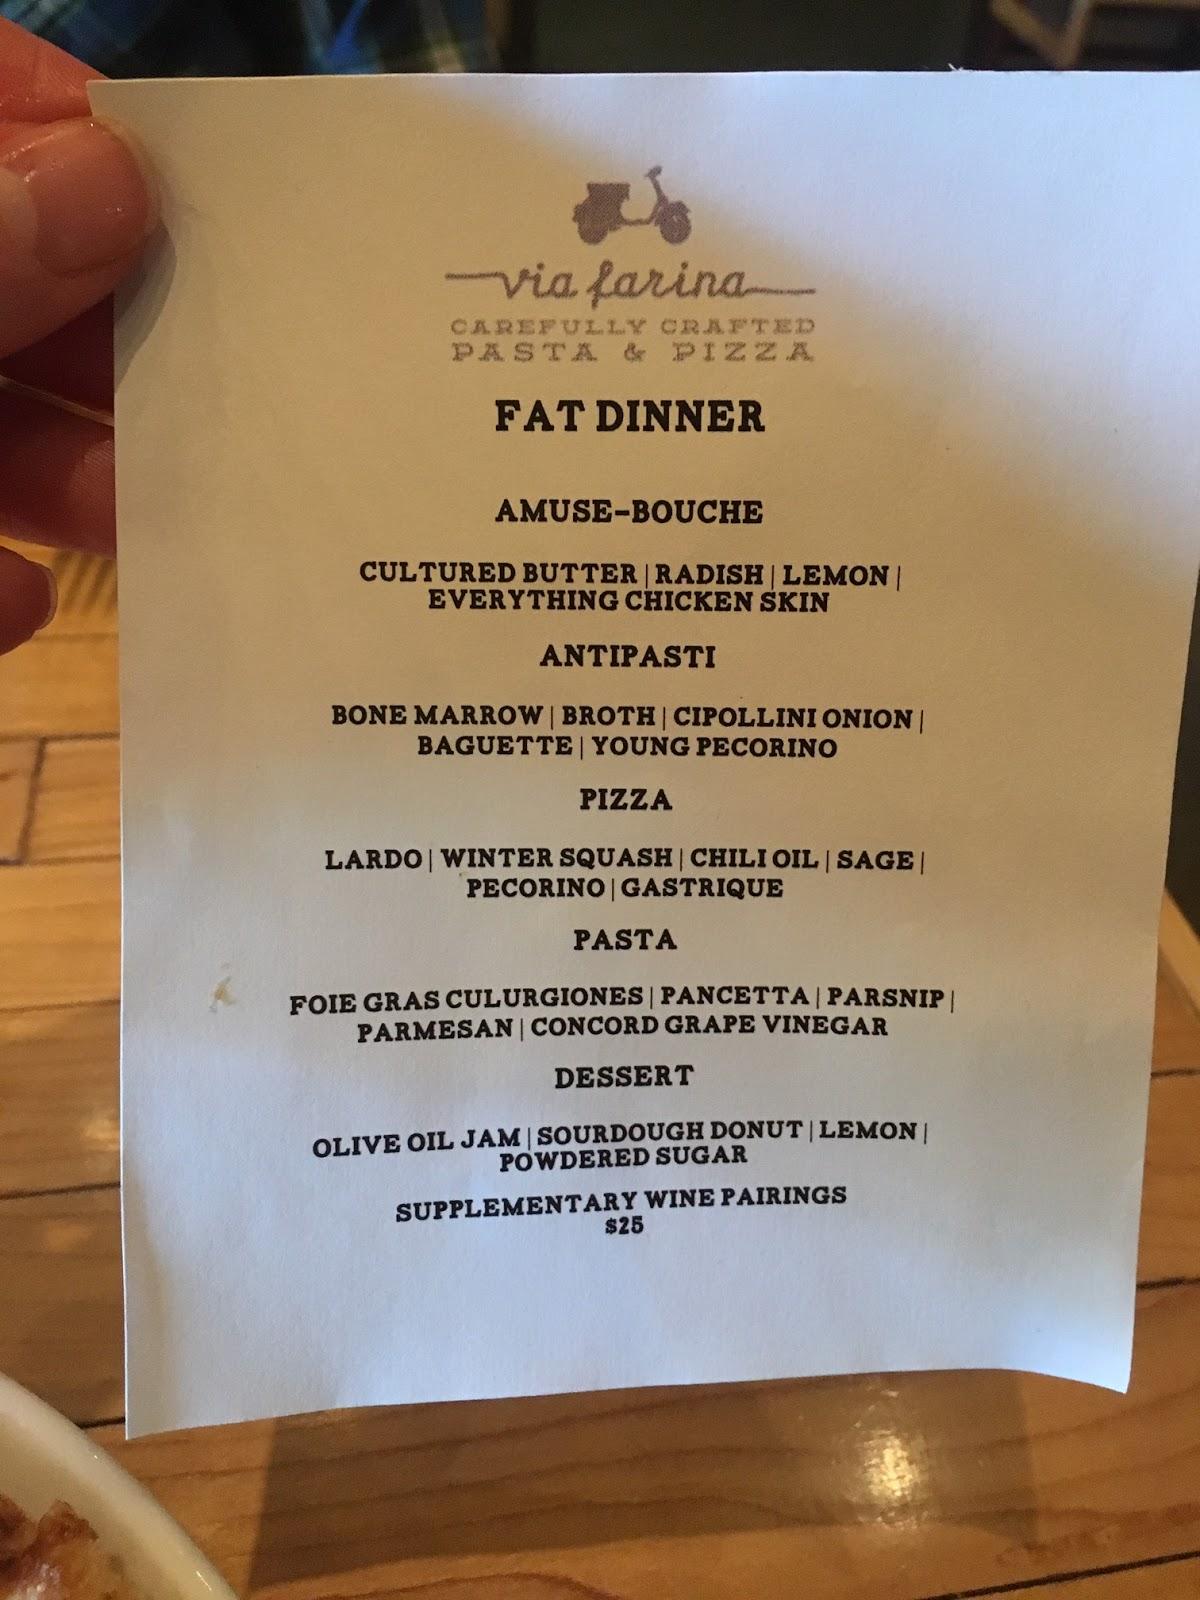 via farina
CAREFULLY CRAFTED
PASTA & PIZZA
FAT DINNER
AMUSE-BOUCHE
CULTURED BUTTER | RADISH | LEMON |
EVERYTHING CHICKEN SKIN
ANTIPASTI
BONE MARROW | BROTH | CIPOLLINI ONION |
BAGUETTE | YOUNG PECORINO
PIZZA
LARDO | WINTER SQUASH | CHILI OIL | SAGE |
PECORINO | GASTRIQUE
PASTA
FOIE GRAS CULURGIONES | PANCETTA | PARSNIP |
PARMESAN | CONCORD GRAPE VINEGAR
DESSERT
OLIVE OIL JAM | SOURDOUGH DONUT | LEMON |
POWDERED SUGAR
SUPPLEMENTARY WINE PAIRINGS
$25